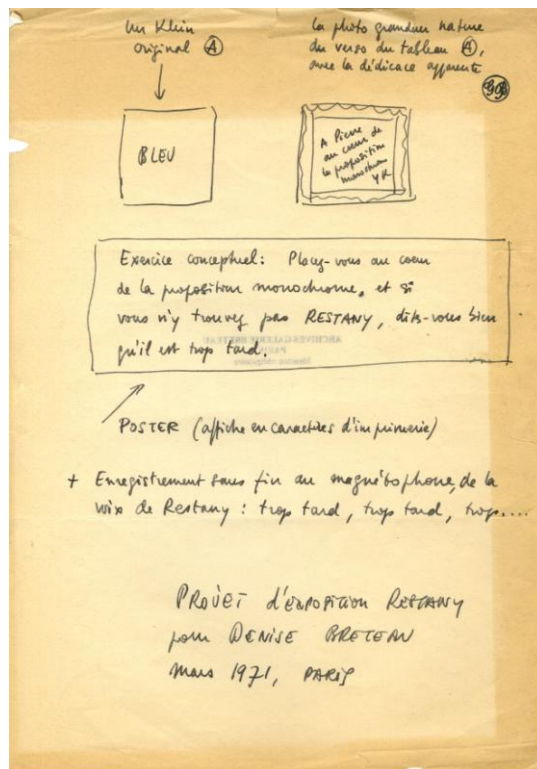 Un Klein
original Ⓐ
La photo grandeur nature
du verso du tableau Ⓐ,
avec la dédicace apparente
BLEU
A Pierre
au coeur de
la proposition
monochrome
YK
Exercice conceptuel: Placez-vous au coeur
de la proposition monochrome, et si
vous n'y trouvez pas RESTANY, dites-vous bien
qu'il est trop tard.
ARCHIVES GALERIE BRETEAU
PARIS
Mention obligatoire
POSTER (affiche en caractères d'imprimerie)
+ Enregistrement sans fin au magnétophone, de la
voix de Restany : trop tard, trop tard, trop....
PROJET d'EXPOSITION RESTANY
pour DENISE BRETEAU
mars 1971, PARIS